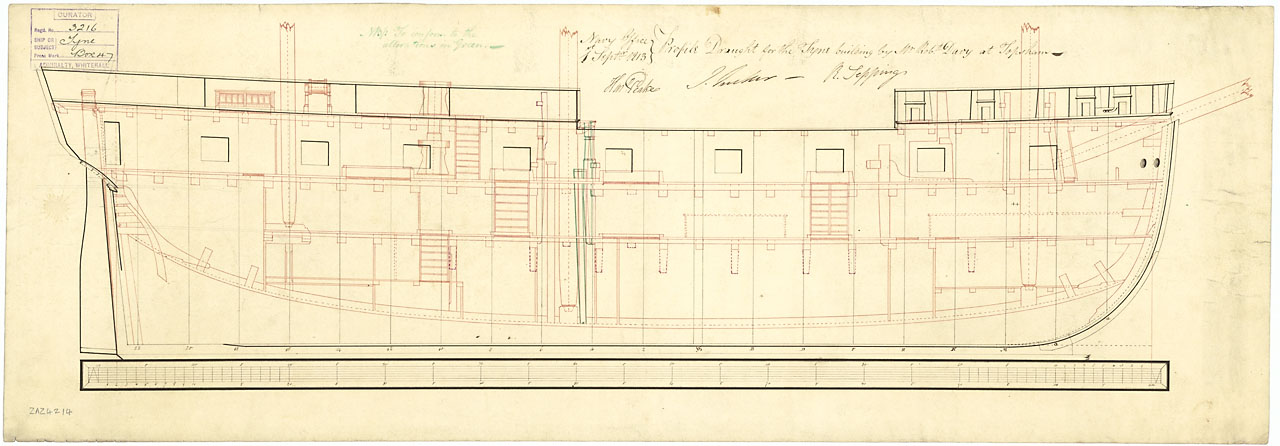 CURATOR
Regd. No. 3216
SHIP OR SUBJECT Tyne
Box 47
ADMIRALTY, WHITEHALL
NB To conform to the
alterations in Green
Navy Office
Septr. 1813
Profile Draught for the Tyne building by Mr. Robt. Davy at Topsham
Hy Peake J. Tucker R. Seppings
ZAZ4214